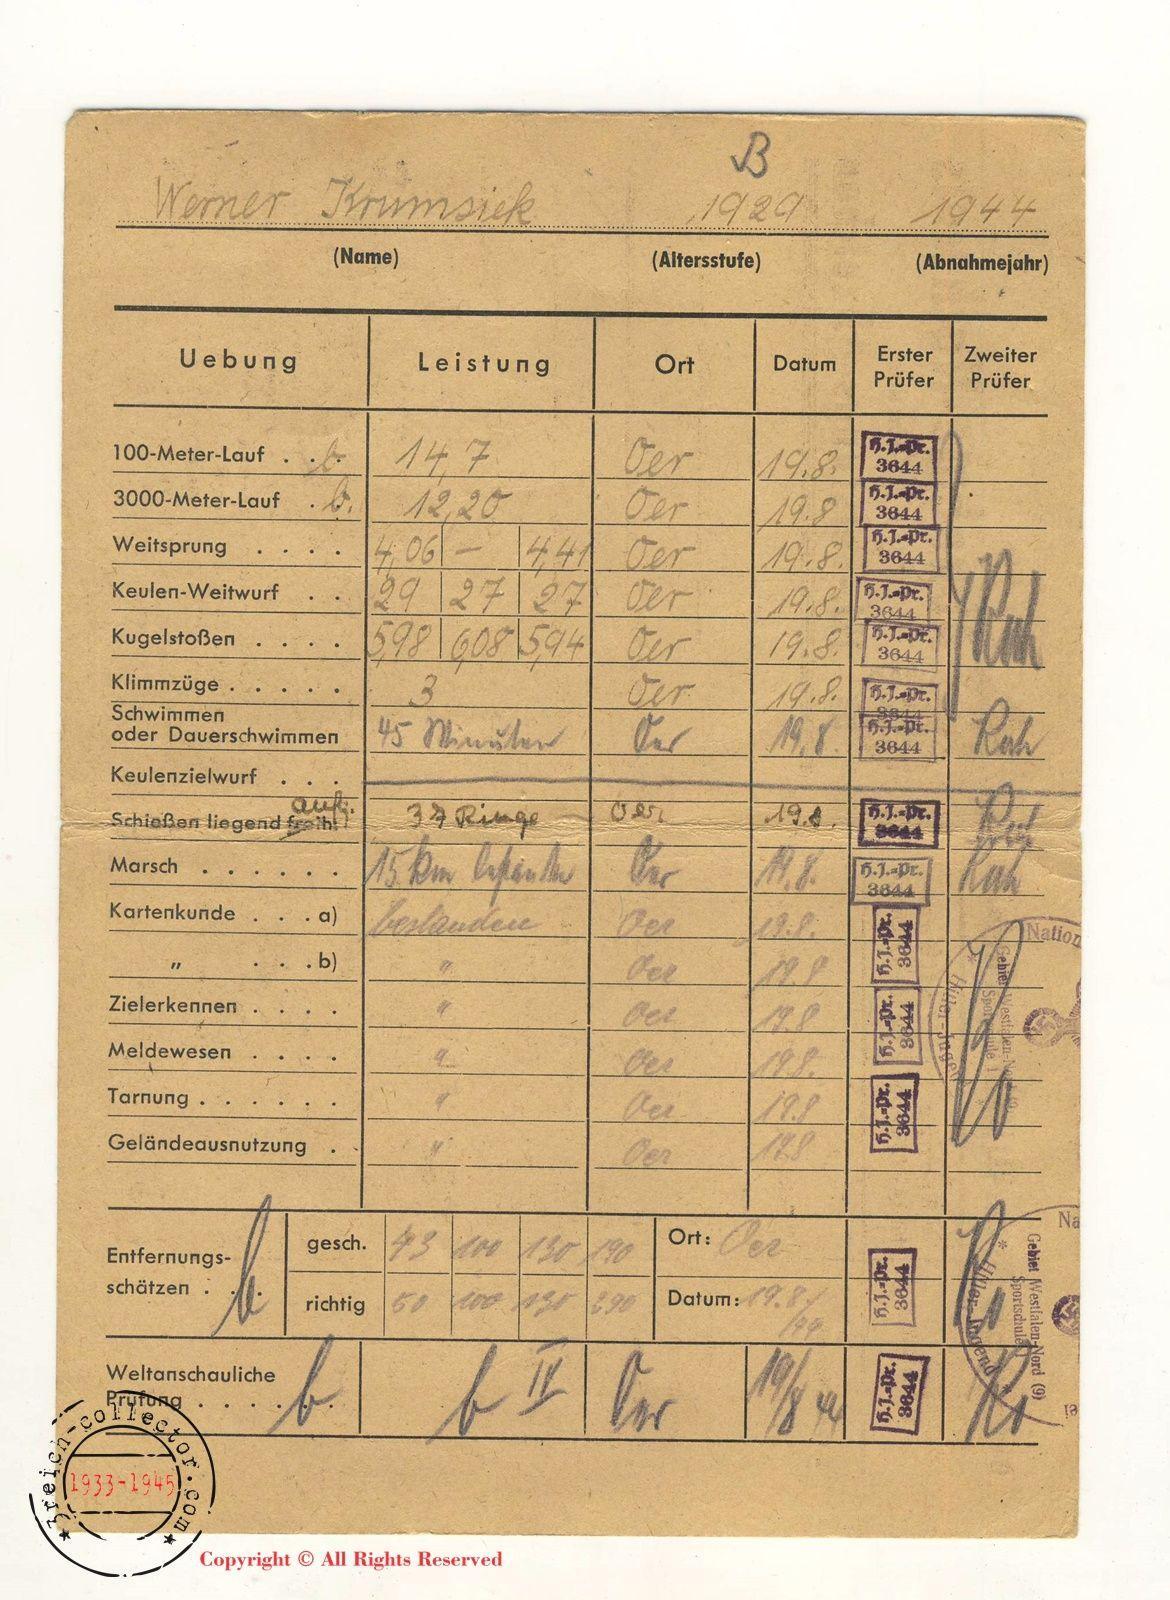 B
Werner Krumsiek 1929 1944
(Name) (Altersstufe) (Abnahmejahr)
Uebung Leistung Ort Datum Erster Prüfer Zweiter Prüfer
100-Meter-Lauf . . . b 14,7 Oer 19.8. H.J.-Pr. 3644
3000-Meter-Lauf . b. 12,20 Oer 19.8 H.J.-Pr. 3644
Weitsprung . . . . 4,06 — 4,41 Oer 19.8. H.J.-Pr. 3644
Keulen-Weitwurf . . 29 27 27 Oer 19.8. H.J.-Pr. 3644
Kugelstoßen . . . . 5,98 6,08 5,94 Oer 19.8. H.J.-Pr. 3644
Klimmzüge . . . . . 3 Oer 19.8. H.J.-Pr. 3644
Schwimmen
oder Dauerschwimmen 45 Minuten Oer 19.8. H.J.-Pr. 3644
Keulenzielwurf . . .
Schießen liegend freih. 37 Ringe Oer. 19.8. H.J.-Pr. 3644
Marsch . . . . . . 15 km Oer 19.8. H.J.-Pr. 3644
Kartenkunde . . . a) bestanden Oer 19.8. H.J.-Pr. 3644
„ . . . b) " Oer 19.8
Zielerkennen . . . . " Oer 19.8 H.J.-Pr. 3644
Meldewesen . . . . " Oer 19.8.
Tarnung . . . . . . " Oer 19.8 H.J.-Pr. 3644
Geländeausnutzung . " Oer 19.8
Nation
Hitler-Jugend
Gebiet Westfalen-Nord (9)
Sportschule
Entfernungs-
schätzen . . . b
gesch. 43 100 130 190 Ort: Oer
richtig 50 100 130 290 Datum: 19.8/44
H.J.-Pr. 3644
Na
Hitler-Jugend
Gebiet Westfalen-Nord (9)
Sportschule
Weltanschauliche
Prüfung . . . . . . b b IV Oer 19/8 44 H.J.-Pr. 3644
3reich-collector.com
1933-1945
Copyright © All Rights Reserved